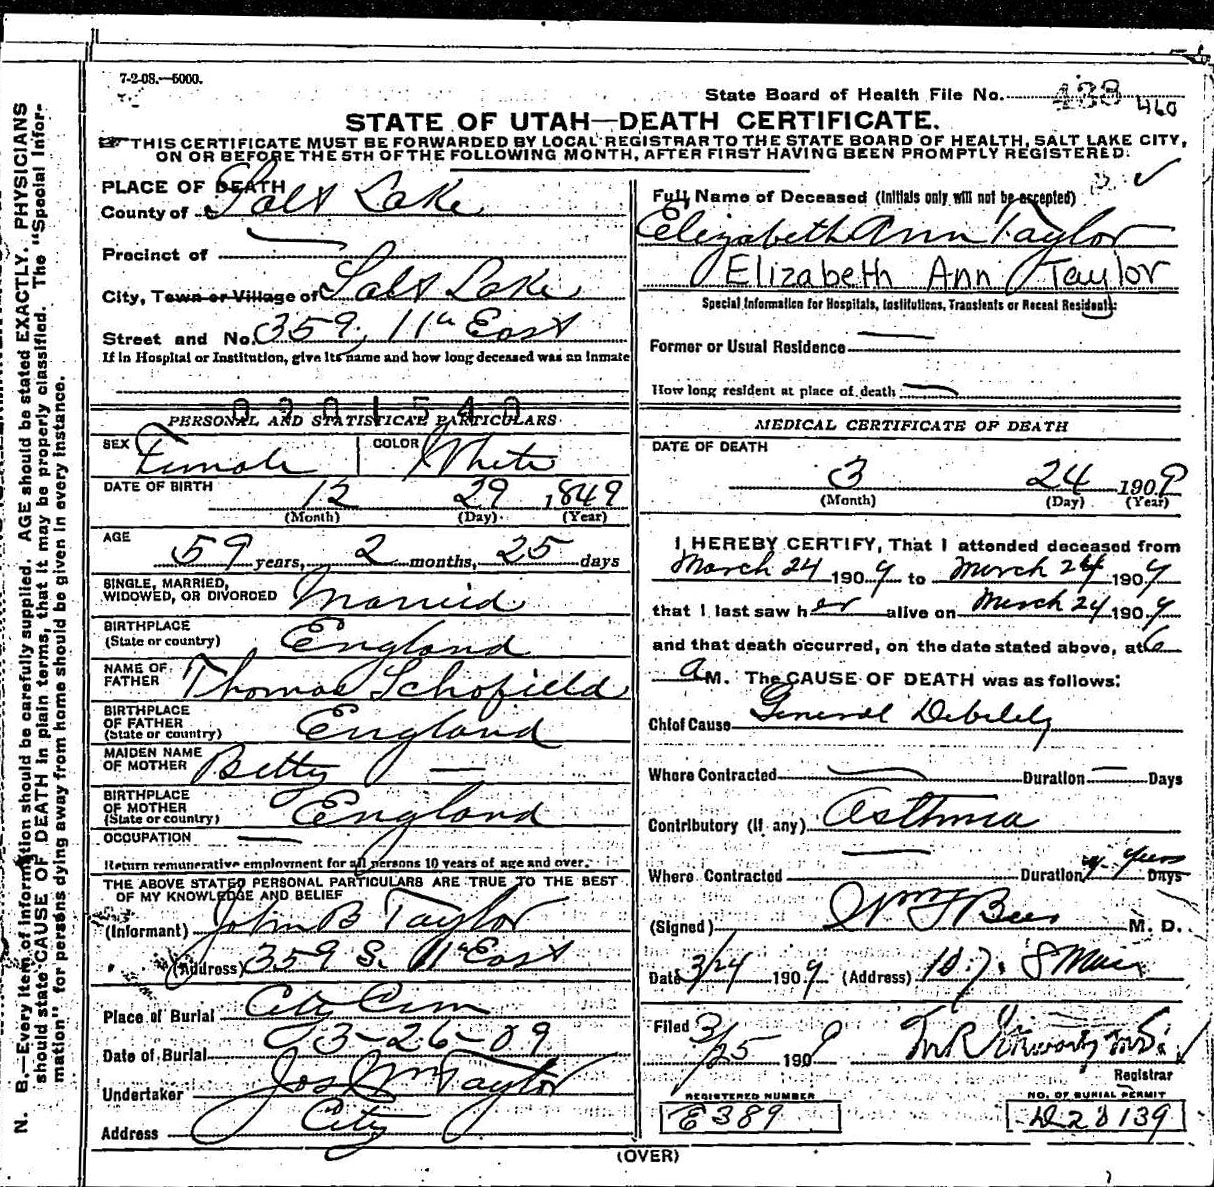 7-2-08.—5000.
State Board of Health File No. 488 460
STATE OF UTAH—DEATH CERTIFICATE.
THIS CERTIFICATE MUST BE FORWARDED BY LOCAL REGISTRAR TO THE STATE BOARD OF HEALTH, SALT LAKE CITY,
ON OR BEFORE THE 5TH OF THE FOLLOWING MONTH, AFTER FIRST HAVING BEEN PROMPTLY REGISTERED.
PLACE OF DEATH
County of Salt Lake
Precinct of —
City, Town or Village of Salt Lake
Street and No. 359, 11th East
If in Hospital or Institution, give its name and how long deceased was an inmate
0201540
PERSONAL AND STATISTICAL PARTICULARS
SEX Female COLOR White
DATE OF BIRTH 12 29 1849
(Month) (Day) (Year)
AGE
59 years, 2 months, 25 days
SINGLE, MARRIED,
WIDOWED, OR DIVORCED Married
BIRTHPLACE
(State or country) England
NAME OF
FATHER Thomas Schofield
BIRTHPLACE
OF FATHER
(State or country) England
MAIDEN NAME
OF MOTHER Betty —
BIRTHPLACE
OF MOTHER
(State or country) England
OCCUPATION —
Return remunerative employment for all persons 10 years of age and over.
THE ABOVE STATED PERSONAL PARTICULARS ARE TRUE TO THE BEST
OF MY KNOWLEDGE AND BELIEF
(Informant) John B Taylor
(Address) 359 S. 11th East
Place of Burial City Cem
Date of Burial 3-26-09
Undertaker Jos Wm Taylor
Address City
Full Name of Deceased (Initials only will not be accepted)
Elizabeth Ann Taylor
Elizabeth Ann Taylor
Special Information for Hospitals, Institutions, Transients or Recent Residents:
Former or Usual Residence —
How long resident at place of death —
MEDICAL CERTIFICATE OF DEATH
DATE OF DEATH
3 24 1909
(Month) (Day) (Year)
I HEREBY CERTIFY, That I attended deceased from
March 24 1909 to March 24 1909
that I last saw her alive on March 24 1909
and that death occurred, on the date stated above, at 6
a M. The CAUSE OF DEATH was as follows:
Chief Cause General Debility
Where Contracted — Duration — Days
Contributory (if any) Asthma
Where Contracted — Duration years Days
(Signed) Wm F Beer M. D.
Date 3/24 1909 (Address) S Main
Filed 3/25 1909
Registrar
REGISTERED NUMBER
E389
NO. OF BURIAL PERMIT
D28139
(OVER)
N. B.—Every item of information should be carefully supplied. AGE should be stated EXACTLY. PHYSICIANS
should state CAUSE OF DEATH in plain terms, that it may be properly classified. The "Special Infor-
mation" for persons dying away from home should be given in every instance.